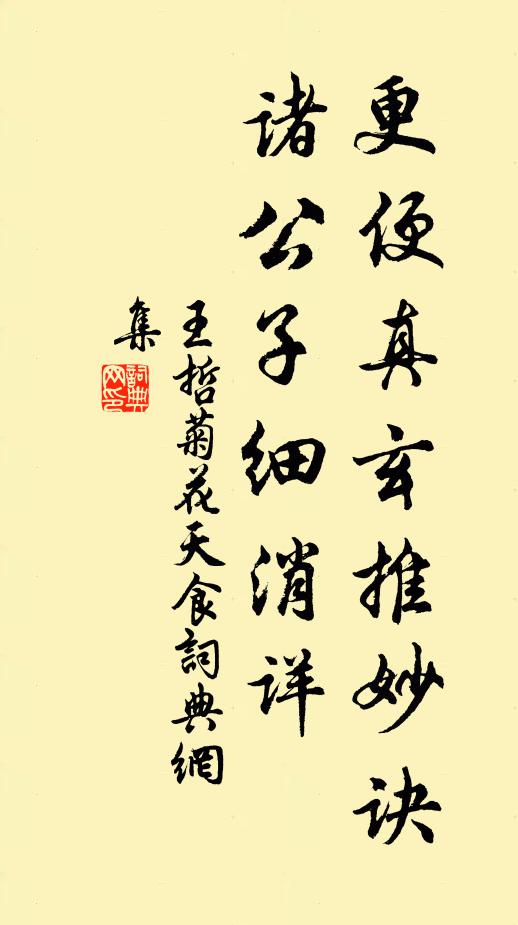 更便真玄推妙诀
诸公子细消详
王哲菊花天食詞典網
集
詞典
网印